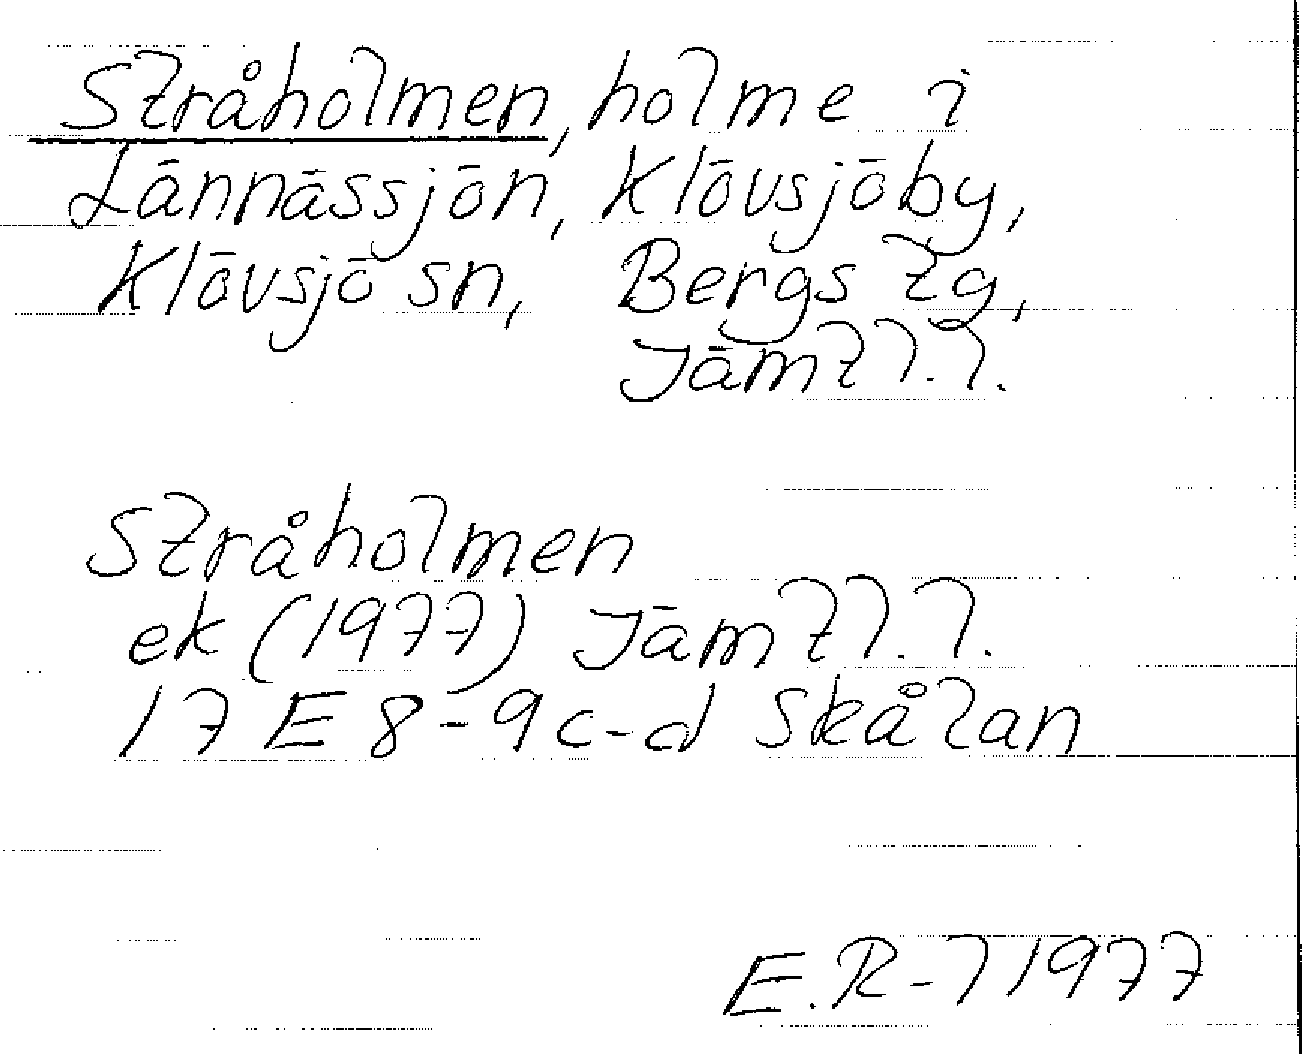 Stråholmen, holme i
Lännässjön, Klövsjöby,
Klövsjö sn, Bergs tg,
Jämtl.l.
Stråholmen
ek (1977) Jämtl.l.
17 E 8-9 c-d Skålan
E.R-l 1977